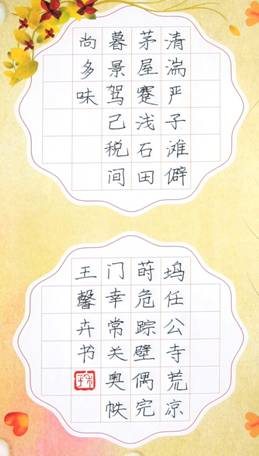 清湍严子滩僻
茅屋蹇浅石田
暮景驾己税间
尚多味
坞任公寺荒凉
莳危踪壁偶完
门幸常关奥帙
王馨卉书